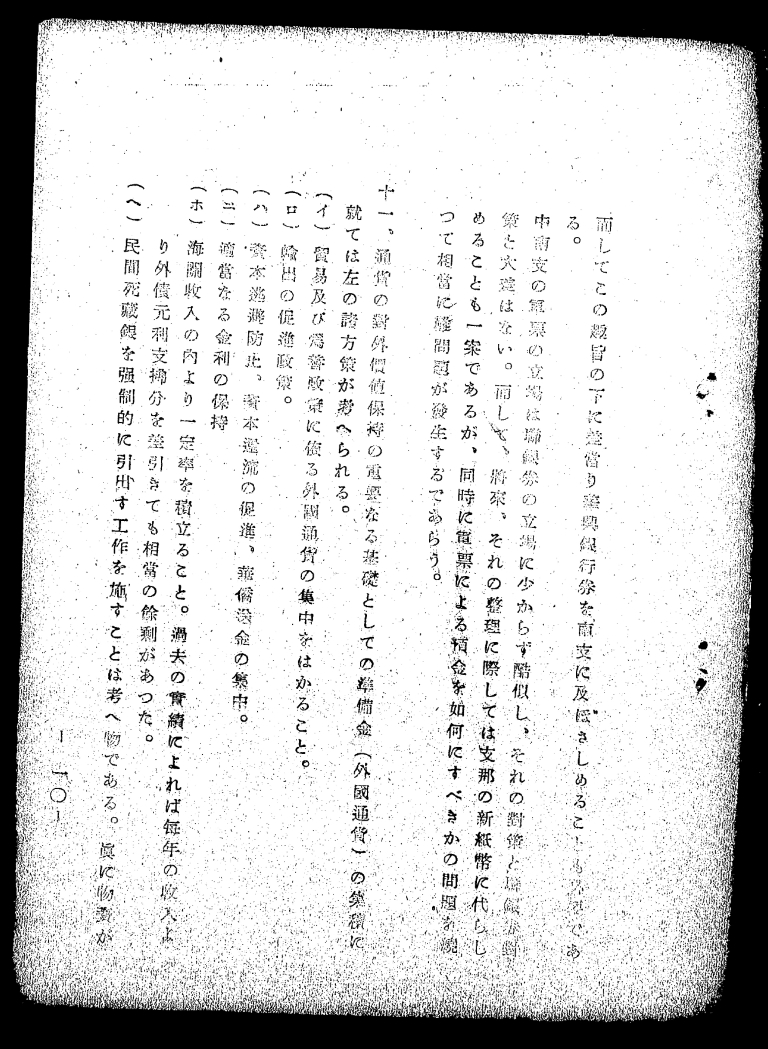 而してこの趣旨の下に差當り華興銀行券を南支に及ぼさしめることも であ
る。
中南支の軍票の立場は聯銀券の立場に少からず酷似し、それの對策と聯銀券對
策と大差はない。而して、將來、それの整理に際しては支那の新紙幣に代らし
めることも一案であるが、同時に軍票による預金を如何にすべきかの問題を繞
つて相當に難問題が發生するであらう。
十一。通貨の對外價値保持の重要なる基礎としての準備金（外國通貨）の集積に
就ては左の諸方策が考へられる。
（イ）貿易及び爲替政策に依る外國通貨の集中をはかること。
（ロ）輸出の促進政策。
（ハ）資本逃避防止、資本還流の促進、華僑送金の集中。
（ニ）適當なる金利の保持
（ホ）海關收入の內より一定率を積立ること。過去の實績によれば每年の收入よ
り外債元利支拂分を差引きても相當の餘剩があつた。
（ヘ）民間死藏銀を强制的に引出す工作を施すことは考へ物である。眞に物資が
― 一〇 ―